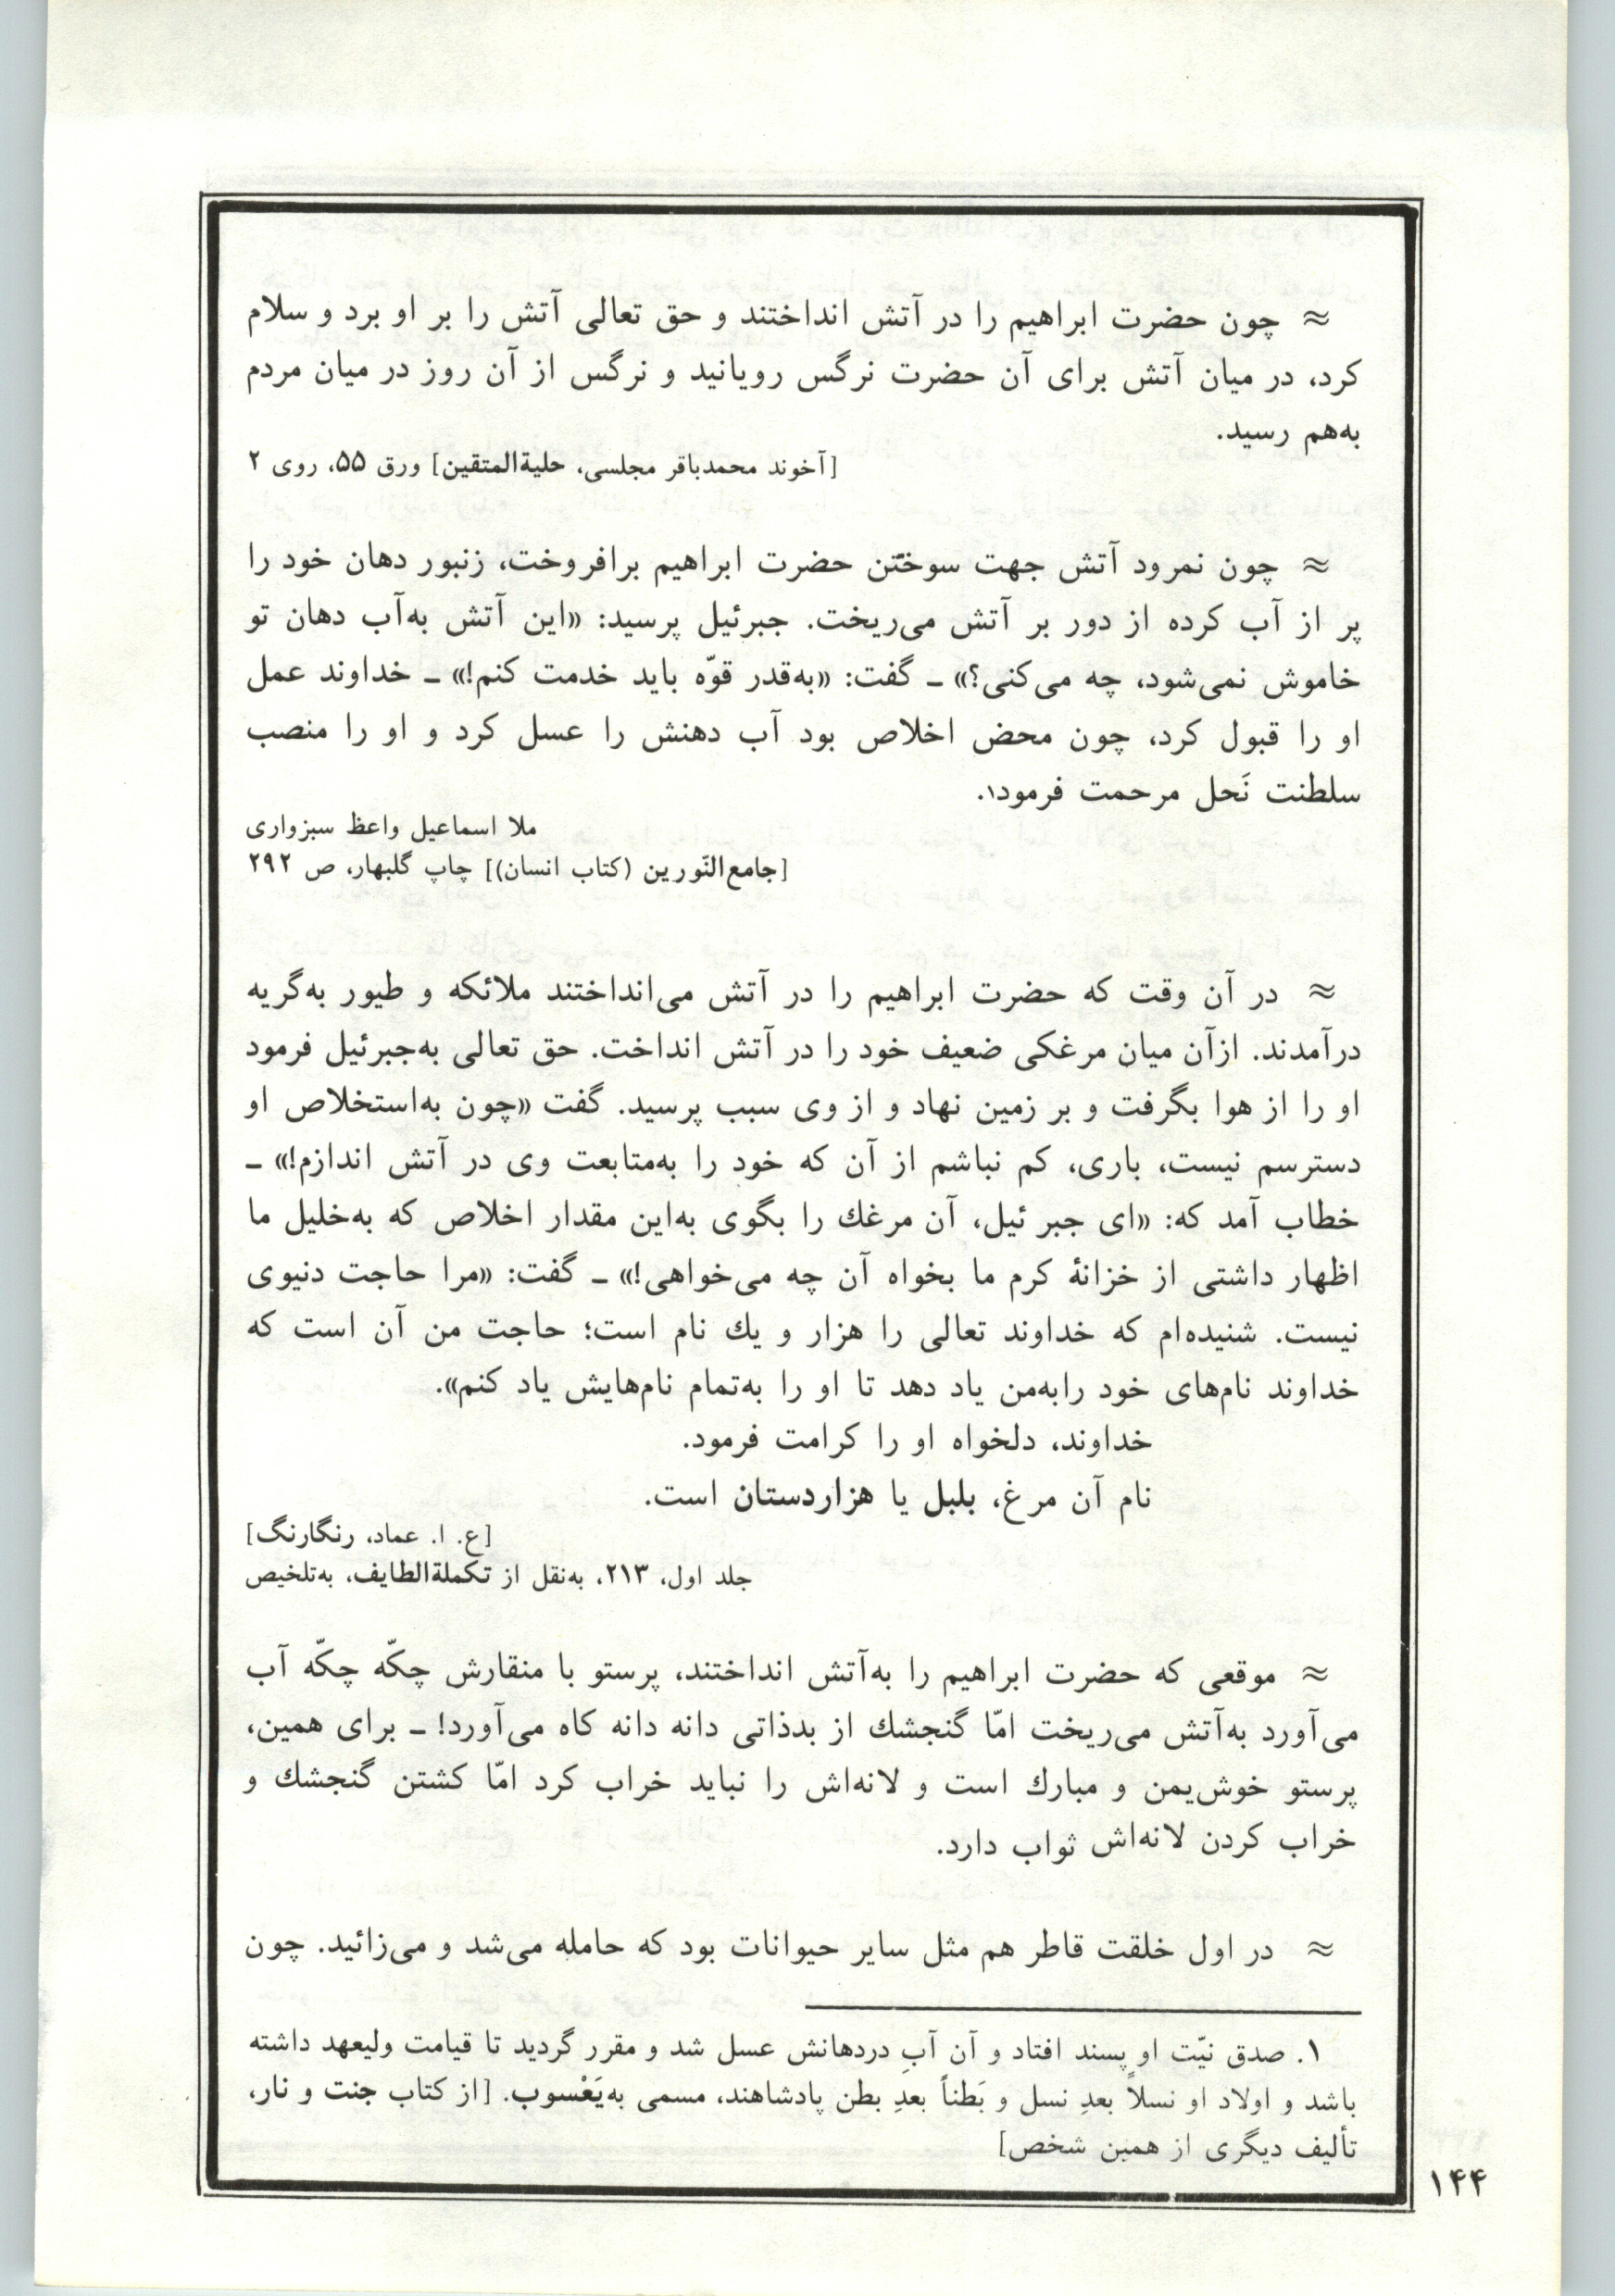 ≈ چون حضرت ابراهیم را در آتش انداختند و حق تعالی آتش را بر او برد و سلام
کرد، در میان آتش برای آن حضرت نرگس رویانید و نرگس از آن روز در میان مردم
به‌هم رسید.
[آخوند محمدباقر مجلسی، حلیةالمتقین] ورق ۵۵، روی ۲
≈ چون نمرود آتش جهت سوختن حضرت ابراهیم برافروخت، زنبور دهان خود را
پر از آب کرده از دور بر آتش می‌ریخت. جبرئیل پرسید: «این آتش به‌آب دهان تو
خاموش نمی‌شود، چه می‌کنی؟» ـ گفت: «به‌قدر قوّه باید خدمت کنم!» ـ خداوند عمل
او را قبول کرد، چون محض اخلاص بود آب دهنش را عسل کرد و او را منصب
سلطنت نَحل مرحمت فرمود۱.
ملا اسماعیل واعظ سبزواری
[جامع‌النّورین (کتاب انسان)] چاپ گلبهار، ص ۲۹۲
≈ در آن وقت که حضرت ابراهیم را در آتش می‌انداختند ملائکه و طیور به‌گریه
درآمدند. ازآن میان مرغکی ضعیف خود را در آتش انداخت. حق تعالی به‌جبرئیل فرمود
او را از هوا بگرفت و بر زمین نهاد و از وی سبب پرسید. گفت «چون به‌استخلاص او
دسترسم نیست، باری، کم نباشم از آن که خود را به‌متابعت وی در آتش اندازم!» ـ
خطاب آمد که: «ای جبر ئیل، آن مرغك را بگوی به‌این مقدار اخلاص که به‌خلیل ما
اظهار داشتی از خزانهٔ کرم ما بخواه آن چه می‌خواهی!» ـ گفت: «مرا حاجت دنیوی
نیست. شنیده‌ام که خداوند تعالی را هزار و یك نام است؛ حاجت من آن است که
خداوند نام‌های خود رابه‌من یاد دهد تا او را به‌تمام نام‌هایش یاد کنم».
خداوند، دلخواه او را کرامت فرمود.
نام آن مرغ، بلبل یا هزاردستان است.
[ع. ا. عماد، رنگارنگ]
جلد اول، ۲۱۳، به‌نقل از تکملةالطایف، به‌تلخیص
≈ موقعی که حضرت ابراهیم را به‌آتش انداختند، پرستو با منقارش چکّه چکّه آب
می‌آورد به‌آتش می‌ریخت امّا گنجشك از بدذاتی دانه دانه کاه می‌آورد! ـ برای همین،
پرستو خوش‌یمن و مبارك است و لانه‌اش را نباید خراب کرد امّا کشتن گنجشك و
خراب کردن لانه‌اش ثواب دارد.
≈ در اول خلقت قاطر هم مثل سایر حیوانات بود که حامله می‌شد و می‌زائید. چون
۱. صدق نیّت او پسند افتاد و آن آبِ دردهانش عسل شد و مقرر گردید تا قیامت ولیعهد داشته
باشد و اولاد او نسلاً بعدِ نسل و بَطناً بعدِ بطن پادشاهند، مسمی به‌یَعْسوب. [از کتاب جنت و نار،
تألیف دیگری از همین شخص]
۱۴۴